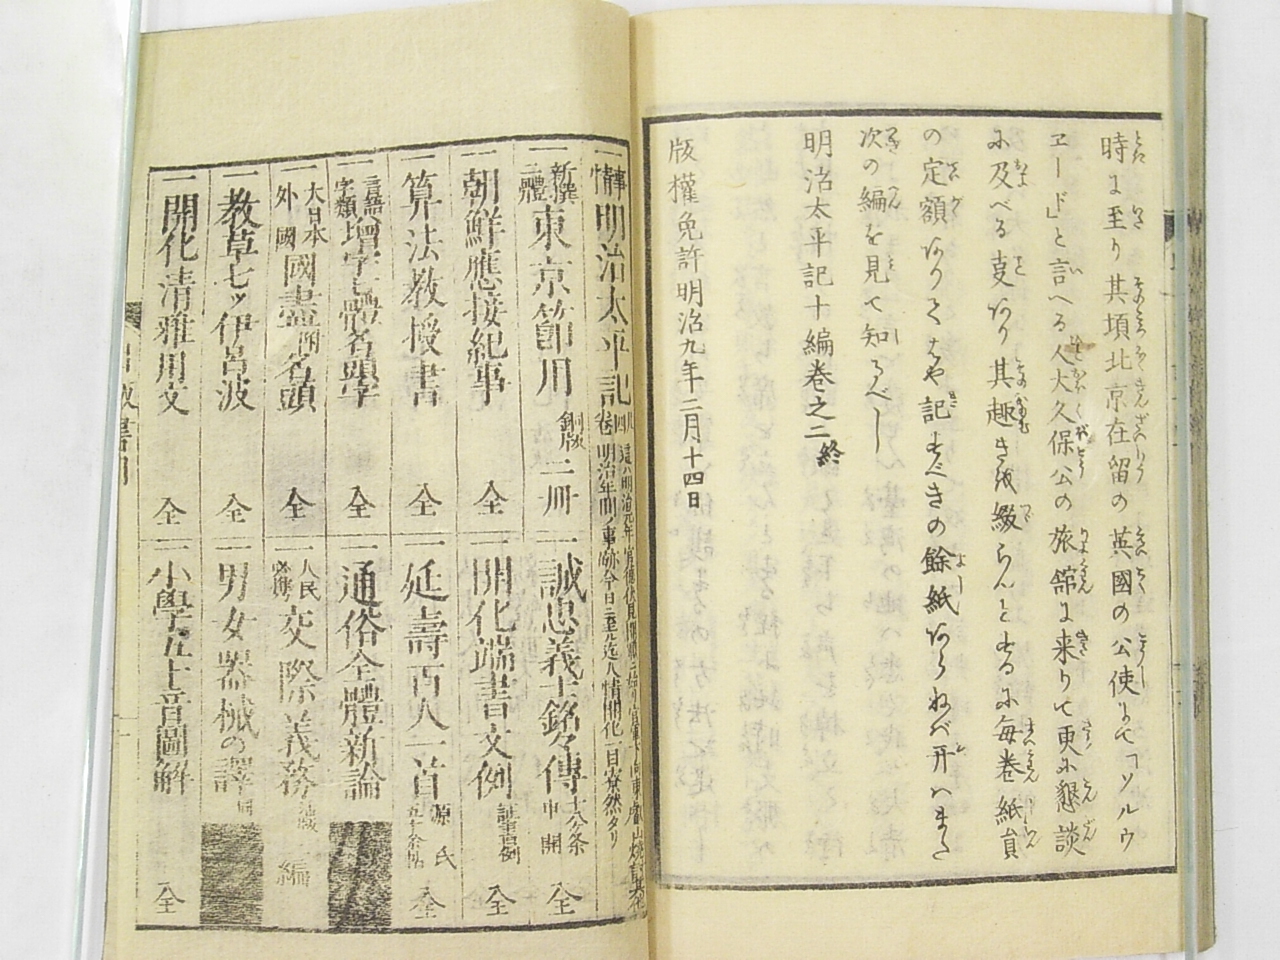 時に至り其頃北京在留の英國の公使すてコソルウ
ヱード」と言へる人大久保公の旅舘に来りて更に懇談
に及べる事あり其趣きを綴らんとするに毎巻紙員
の定額ありてはや記すべきの餘紙あらねば开はまた
次の編を見て知るべし
明治太平記十編巻之二終
版權免許明治九年二月十四日
事情明治太平記
新撰三體東京節用 銅版 二冊
朝鮮應接紀事 全
算法教授書 全
言語字類増字七體名頭字 全
大日本外國國盡附名頭 全
教草七ッ伊呂波 全
開化清雅用文 全
誠忠義士銘々傳
開化端書文例 全
延壽百人一首 源氏 全
通俗全體新論
人民必携交際義務 編
男女器械の譯
小學五十音圖解 全